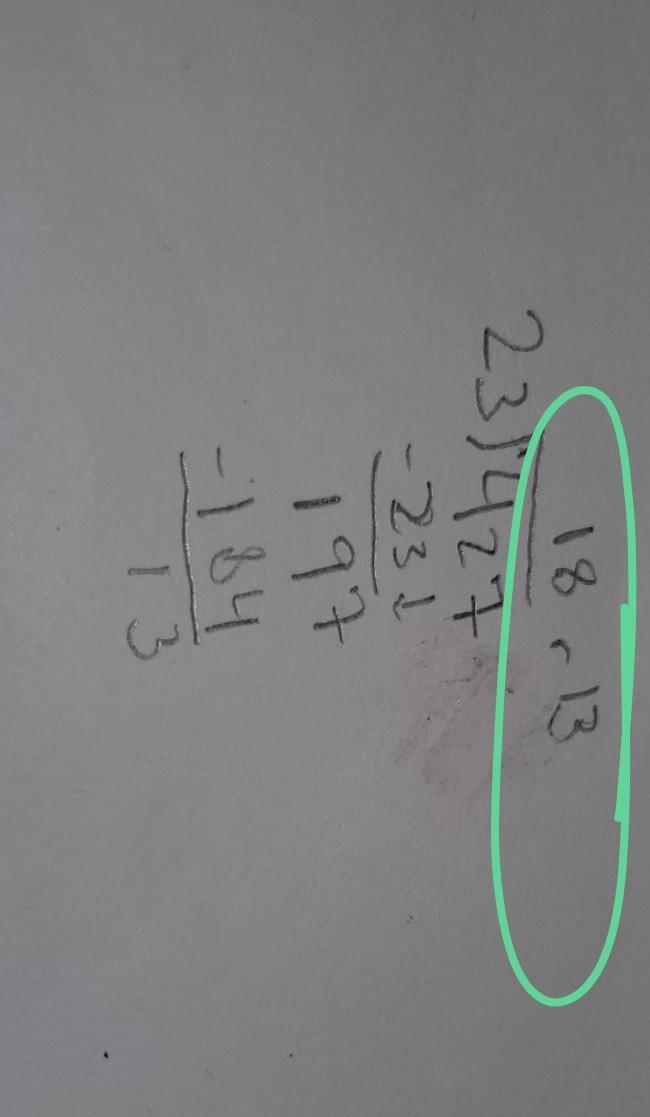 18 r 13
23)427
-23↓
197
-184
13